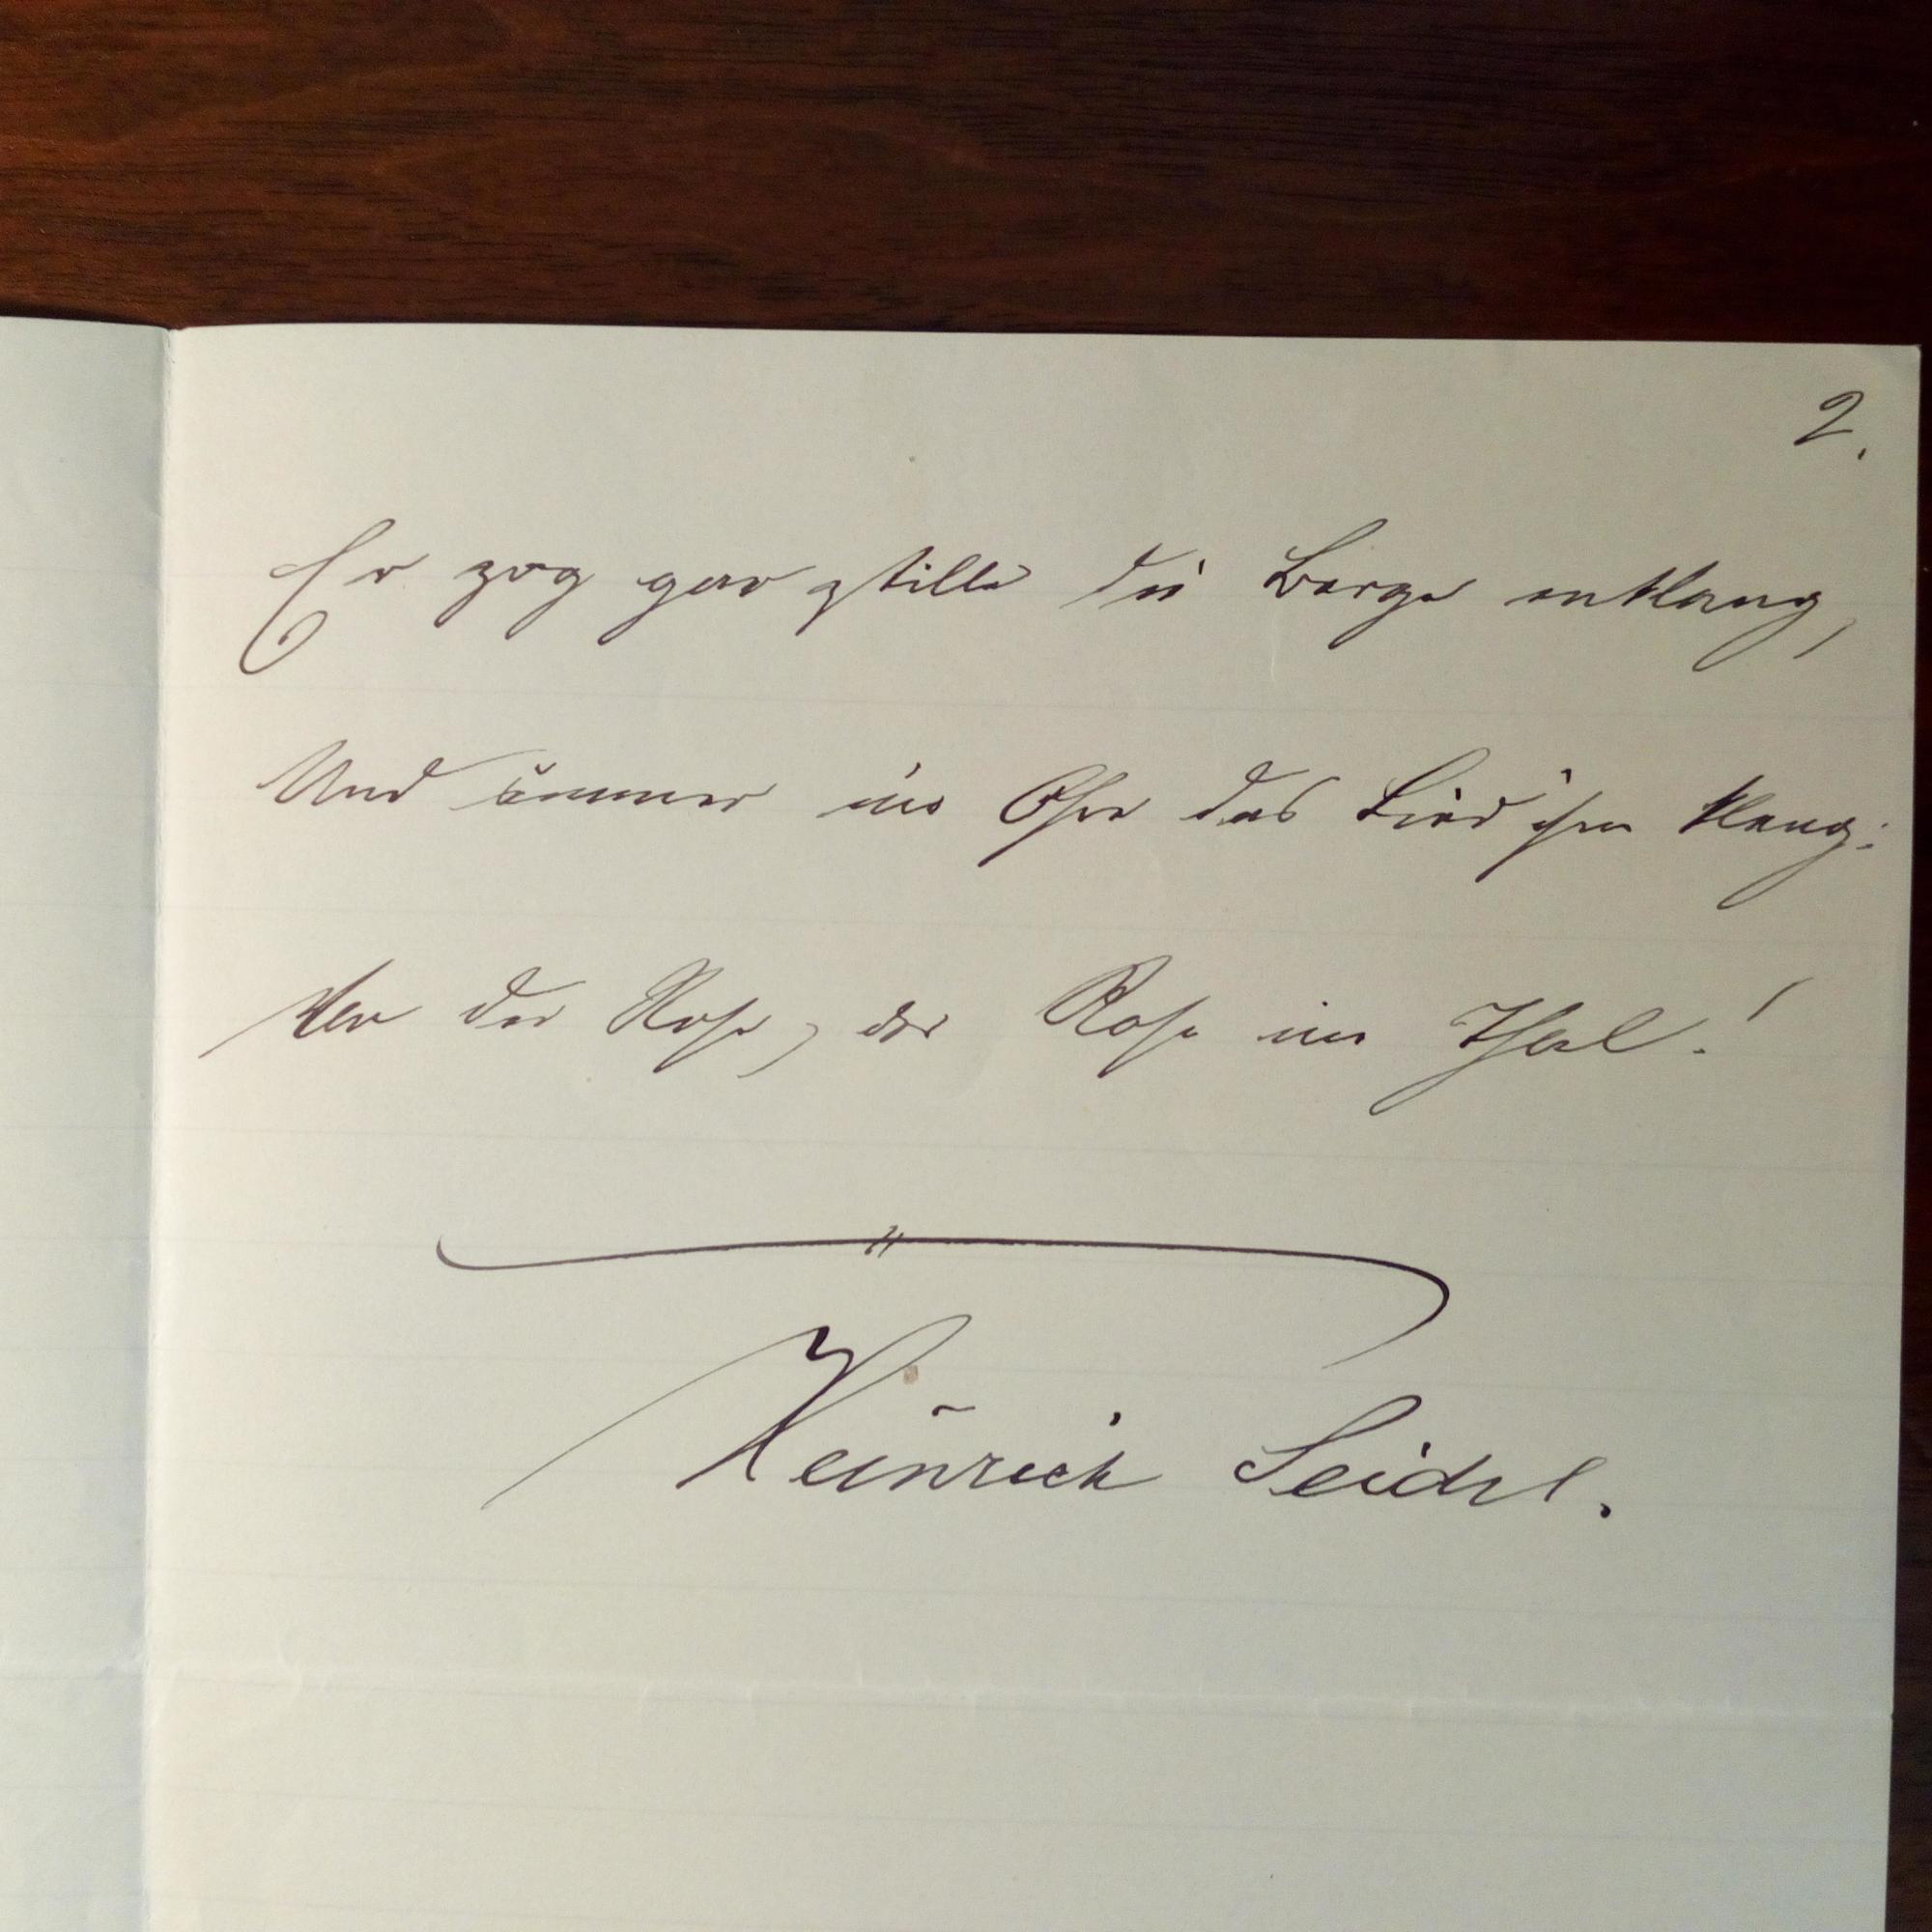 2.
Er zog gar stille die Berge entlang,
Und immer ins Ohr das Lied ihm klang:
Von der Rose, der Rose im Thal!
Heinrich Seidel.